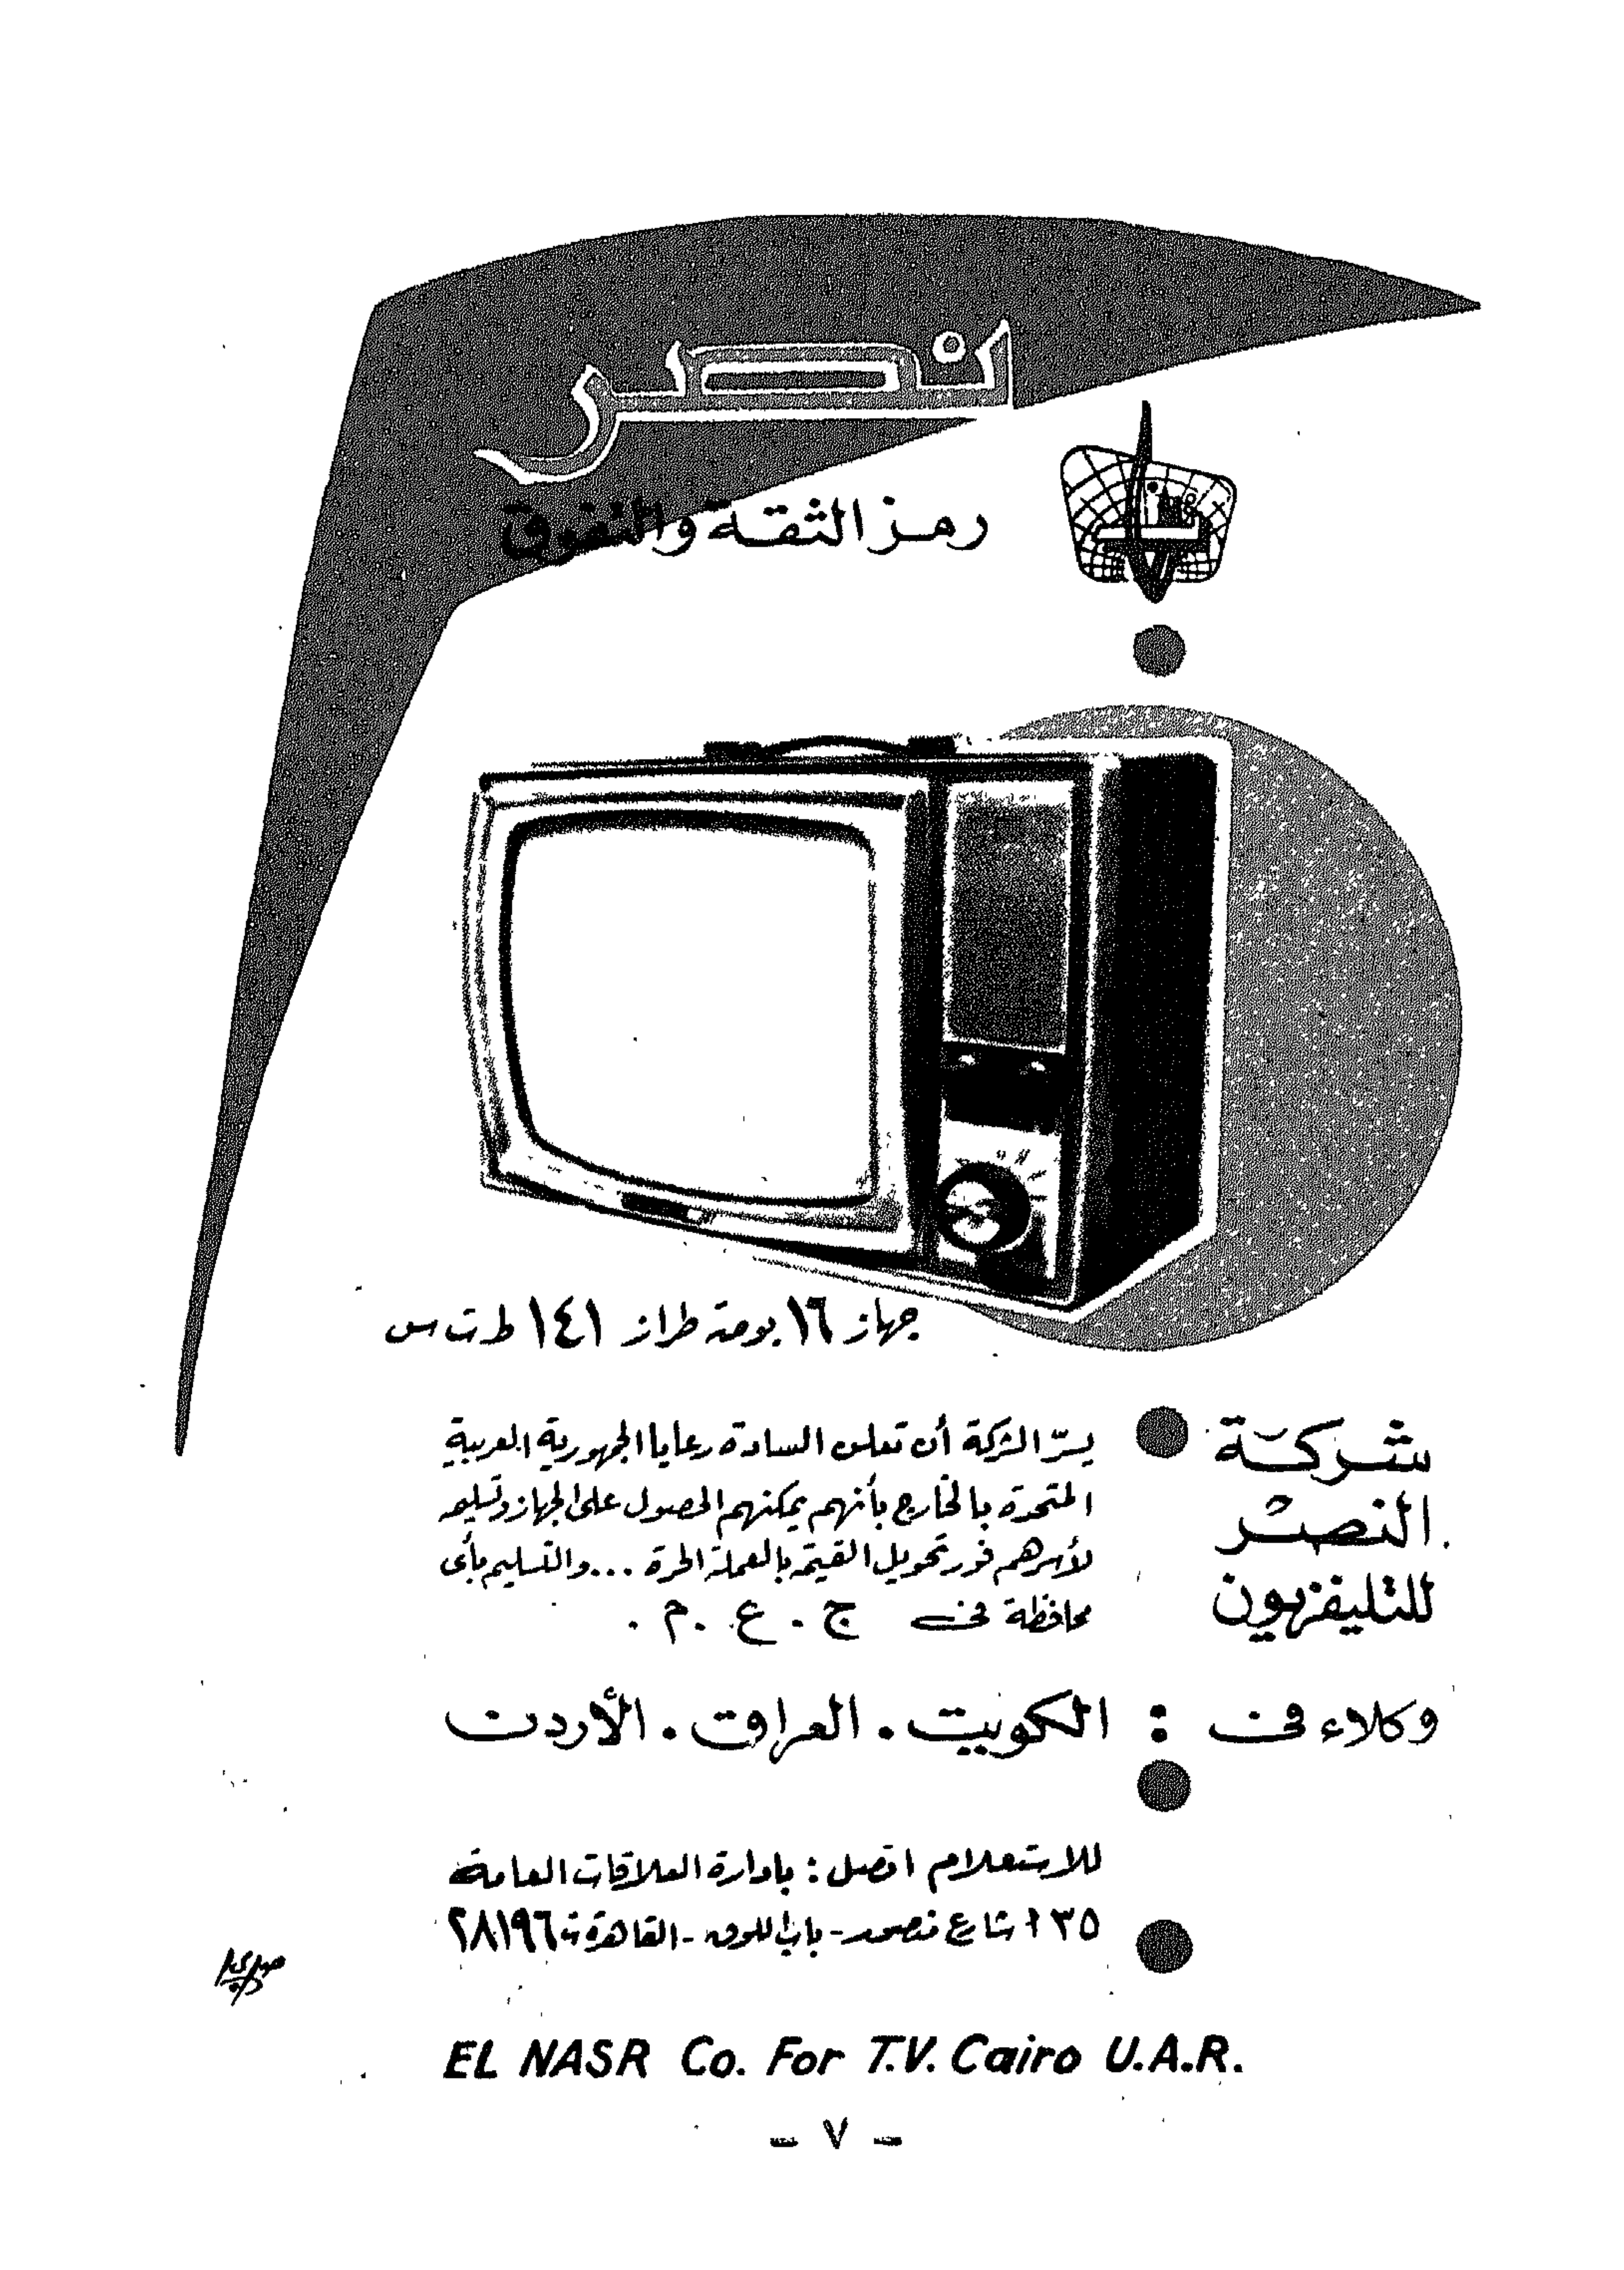 نصر
رمز الثقة والتفوق
جهاز ١٦ بوصة طراز ١٤١ ط ت س
شركة
النصر
للتليفزيون
يسرّ الشركة أن تعلن السادة رعايا الجمهورية العربية
المتحدة بالخارج بأنهم يمكنهم الحصول على الجهاز وتسليمه
لأسرهم فور تحويل القيمة بالعملة الحرة ... والتسليم بأى
محافظة فى ج . ع . م .
وكلاء فى : الكويت . العراق . الأردن
للاستعلام اتصل : بادارة العلاقات العامة
شارع منصور - باب اللوق - القاهرة ت ٢٨١٩٦
EL NASR Co. For T.V. Cairo U.A.R.
- ٧ -